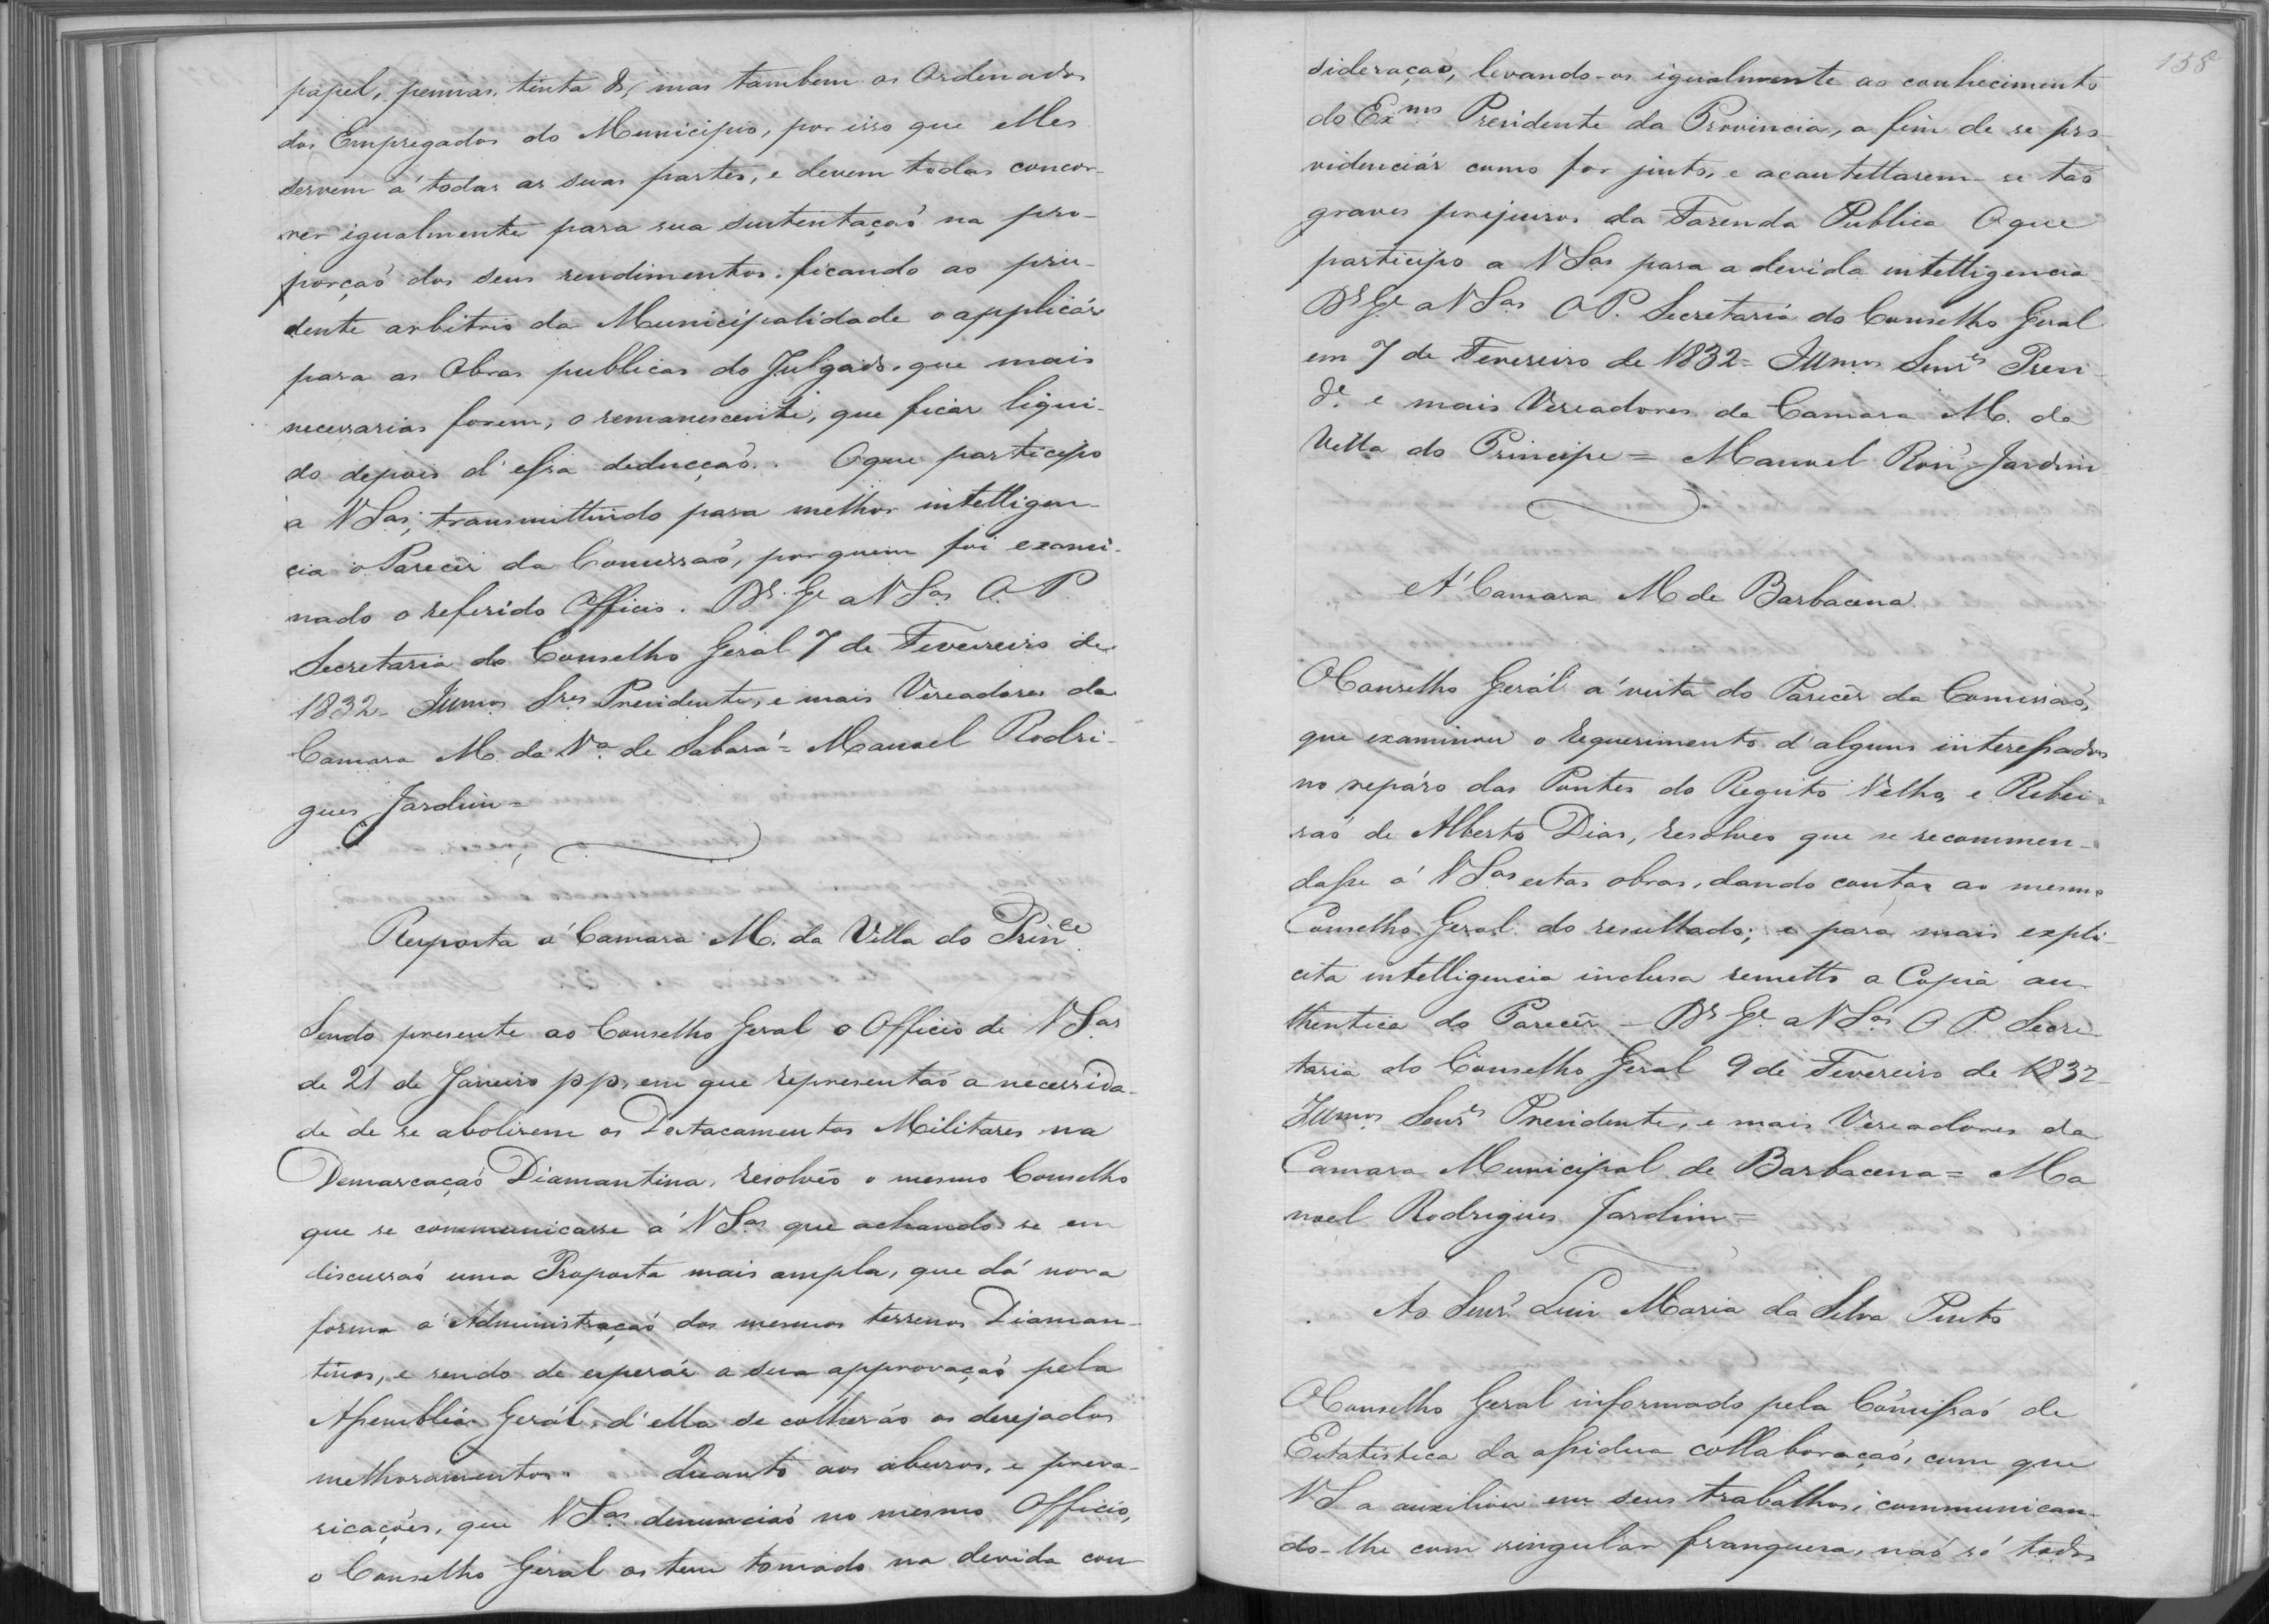 papel, pennas, tinta &, mas tambem os Ordenados
dos Empregados do Municipio, por isso que elles
servem á todas as suas partes, e devem todas concor-
rer igualmente para sua sustentaçaõ na pro-
porçaõ dos seus rendimentos; ficando ao pru-
dente arbitrio da Municipalidade o applicár
para as Obras publicas do Julgado, que mais
necessarias forem, o remanescente, que ficar liqui-
do depois d'essa deducçaõ. Oque participo
a VSas, transmittindo para melhor intelligen-
cia o Parecêr da Comissaõ, porquem foi exami-
nado o referido Officio. Ds. Ge a VSas O. P.
Secretaria do Conselho Geral 7 de Fevereiro de
1832- Illmos Sres Presidente, e mais Vereadores da
Camara M. da Va. de Sabará = Manoel Rodri-
gues Jardim =
Resposta á Camara M. da Villa do Prince
Sendo presente ao Conselho Geral o Officio de VSas
de 21 de Janeiro pp, em que representaõ a necessida-
de de se abolirem os Destacamentos Militares na
Demarcaçaõ Diamantina, resolvêo o mesmo Conselho
que se communicasse á VSas que achando-se em
discussaõ uma Proposta mais ampla, que dá nova
forma á Administraçaõ dos mesmos terrenos Diaman-
tinos, e sendo de esperár a sua approvaçaõ pela
Assembléa Gerál, d'ella se colheráõ os desejados
melhoramentos. Quanto aos abusos, e preva-
ricações, que VSas denunciaõ no mesmo Officio,
o Conselho Geral os tem tomado na devida con-
158
sideraçaõ, levando-os igualmente ao conhecimento
do Exmo Presidente da Provincia, a fim de se pro-
videnciár como for justo, e acautellarem-se taõ
graves prejuisos da Fazenda Publica Oque
participo a VSas para a devida intelligencia
Ds Ge a VSas O P. Secretaria do Conselho Geral
em 7 de Fevereiro de 1832= Illmos Senres Presi-
de. e mais Vereadores da Camara M. da
Villa do Principe = Manoel Roiz Jardim
A' Camara M de Barbacena
OConselho Gerál á vista do Parecêr da Comissaõ,
que examinou o requerimento d'alguns interessados
no repáro das Pontes do Registo Velho, e Ribei-
raõ de Alberto Dias, resolveo que se recommen-
dasse á VSas estas obras, dando contas ao mesmo
Conselho Geral do resultado; e para mais expli-
cita intelligencia inclusa remetto a Copia au-
thentica do Parecêr - Ds Ge a VSas O P. Secre-
taria do Conselho Geral 9 de Fevereiro de 1832-
Illmos Senres Presidente, e mais Vereadores da
Camara Municipal de Barbacena = Ma
noel Rodrigues Jardim =
Ao Senr Luiz Maria da Silva Pinto
OConselho Geral informado pela Comissaõ de
Estatistica da assidua collaboraçaõ, com que
VS. a auxiliou em seus trabalhos, communican-
do-lhe com singular franqueza, naõ só todos